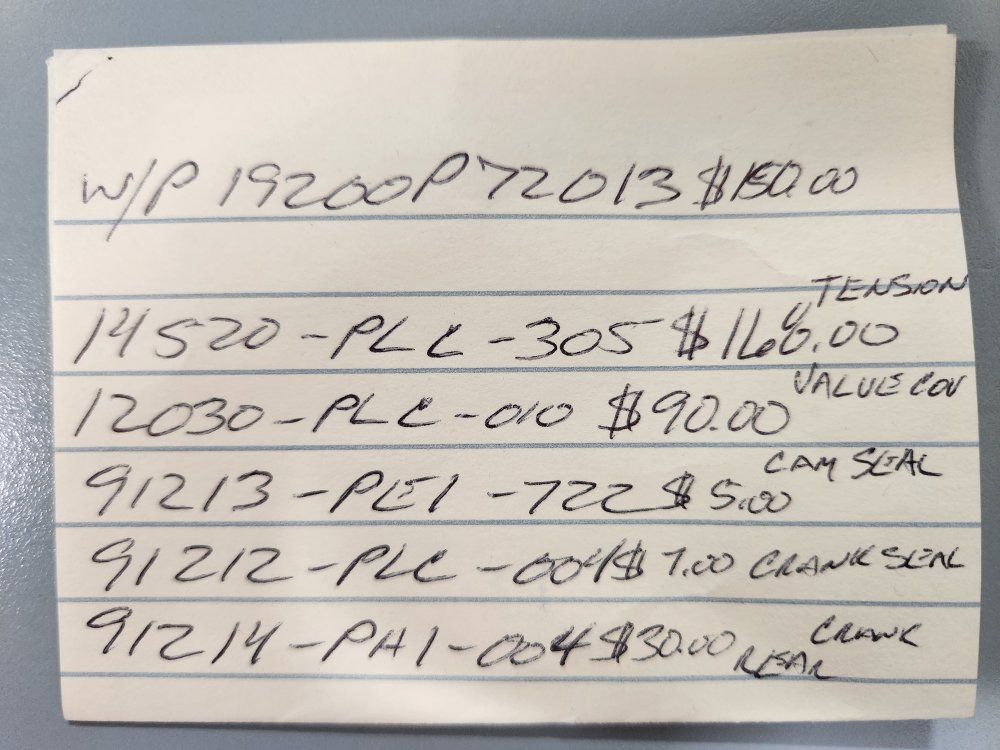 W/P 19200P72013 $150.00
TENSION
14520-PLC-305 $160.00
VALVE COV
12030-PLC-010 $90.00
CAM SEAL
91213-PE1-722 $5.00
91212-PLC-004 $7.00 CRANK SEAL
91214-PH1-004 $30.00 REAR CRANK